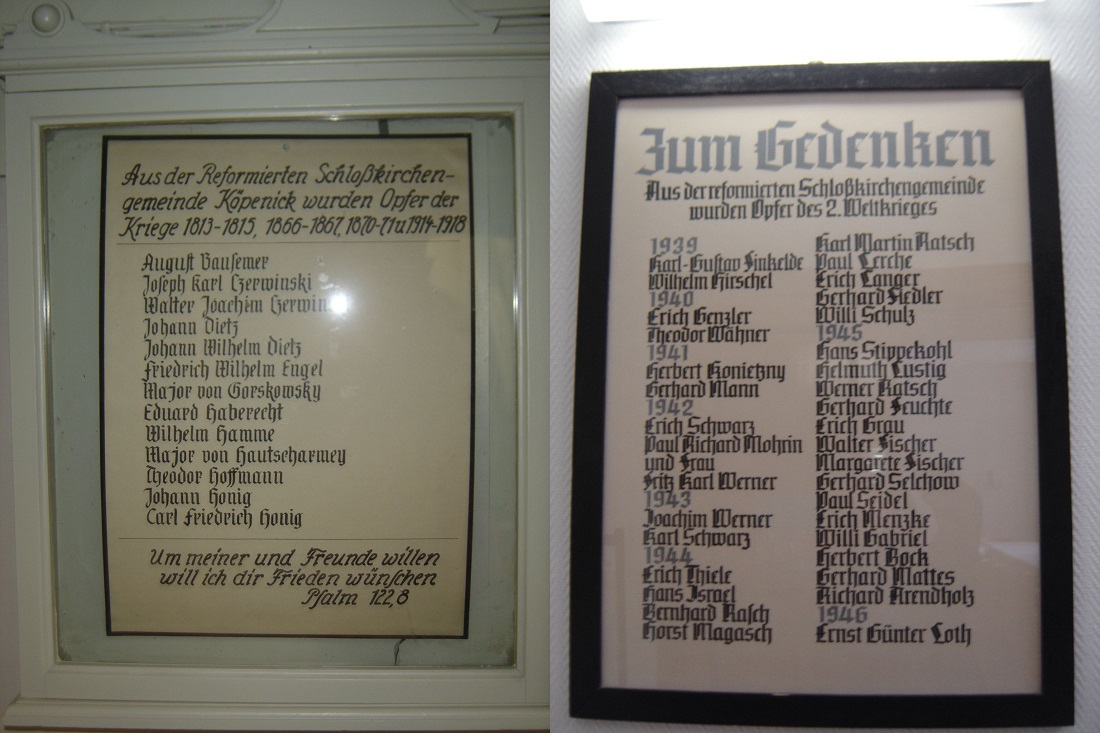 Aus der Reformierten Schloßkirchen-
gemeinde Köpenick wurden Opfer der
Kriege 1813-1815, 1866-1867, 1870-71 u 1914-1918
August Bausemer
Joseph Karl Czerwinski
Walter Joachim
Johann Dietz
Johann Wilhelm Dietz
Friedrich Wilhelm Engel
Major von Gorskowsky
Eduard Haberecht
Wilhelm Hamme
Major von Hautscharmey
Theodor Hoffmann
Johann Honig
Carl Friedrich Honig
Um meiner und Freunde willen
will ich dir Frieden wünschen
Psalm 122,8
Zum Gedenken
Aus der reformierten Schloßkirchengemeinde
wurden Opfer des 2. Weltkrieges
1939
Karl-Gustav Finkelde
Wilhelm Hirschel
1940
Erich Genzler
Theodor Wähner
1941
Herbert Konietzny
Gerhard Mann
1942
Erich Schwarz
Paul Richard Mohrin
und Frau
Fritz Karl Werner
1943
Joachim Werner
Karl Schwarz
1944
Erich Thiele
Hans Israel
Bernhard Rasch
Horst Magasch
Karl Martin Ratsch
Paul Lerche
Erich Langer
Gerhard Fiedler
Willi Schulz
1945
Hans Stippekohl
Helmuth Lustig
Werner Ratsch
Gerhard Feuchte
Erich Grau
Walter Fischer
Margarete Fischer
Gerhard Selchow
Paul Seidel
Erich Menzke
Willi Gabriel
Herbert Bock
Gerhard Mattes
Richard Arendholz
1946
Ernst Günter Loth